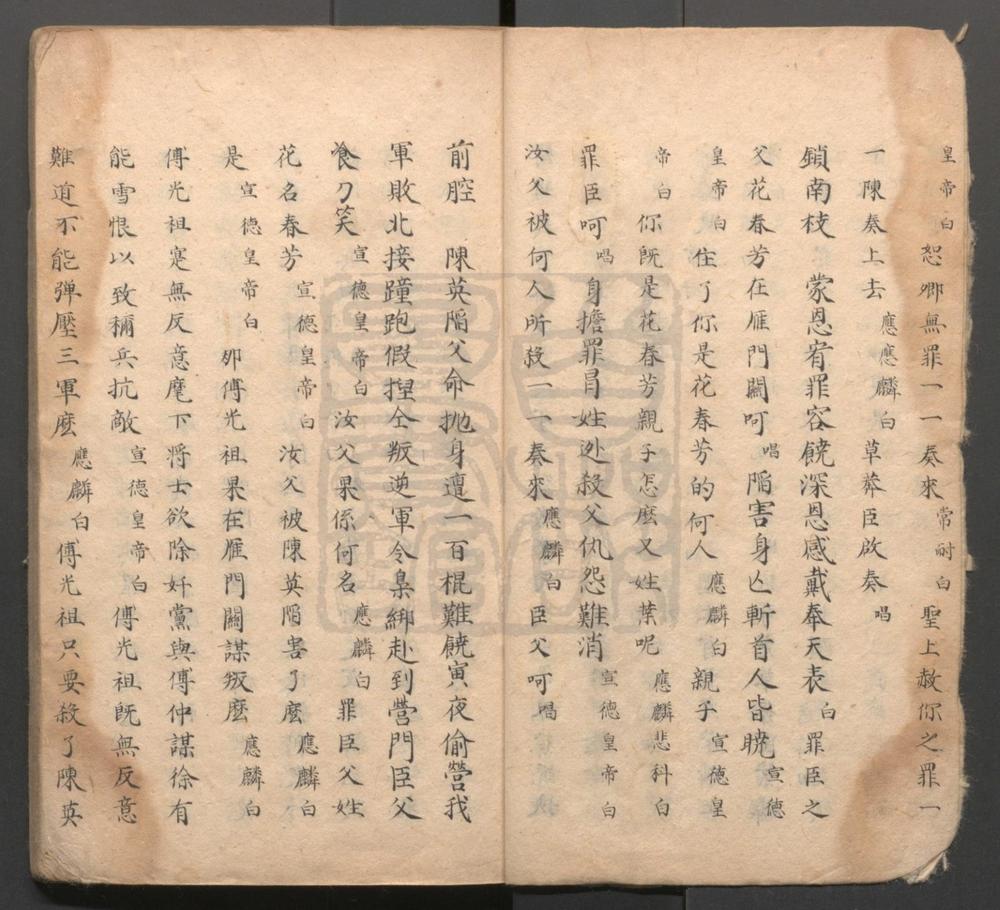 皇帝白 恕卿無罪一一奏來 常耐白 聖上赦你之罪一
一陳奏上去 應應麟白 草莽臣啟奏 唱
鎖南枝 蒙恩宥罪容饒深恩感戴奉天表 白 罪臣之
父花春芳在雁門關呵 唱 陥害身亾斬首人皆曉 宣德
皇帝白 住了你是花春芳的何人 應麟白 親子 宣德皇
帝白 你既是花春芳親子怎麽又姓葉呢 應麟悲科白
罪臣呵 唱 身擔罪冒姓迯殺父仇怨難消 宣德皇帝白
汝父被何人所殺一一奏來 應麟白 臣父呵 唱
前腔 陳英陥父命拋身遭一百棍難饒寅夜偷營我
軍敗北接踵跑假揑仝叛逆軍令梟綁赴到營門臣父
飡刀笑 宣德皇帝白 汝父果係何名 應麟白 罪臣父姓
花名春芳 宣德皇帝白 汝父被陳英陥害了麽 應麟白
是 宣德皇帝白 邜傅光祖果在雁門關謀叛麽 應麟白
傅光祖寔無反意麾下將士欲除奸黨與傅仲謀徐有
能雪恨以致稱兵抗敵 宣德皇帝白 傅光祖既無反意
難道不能弹壓三軍麽 應麟白 傅光祖只要殺了陳英